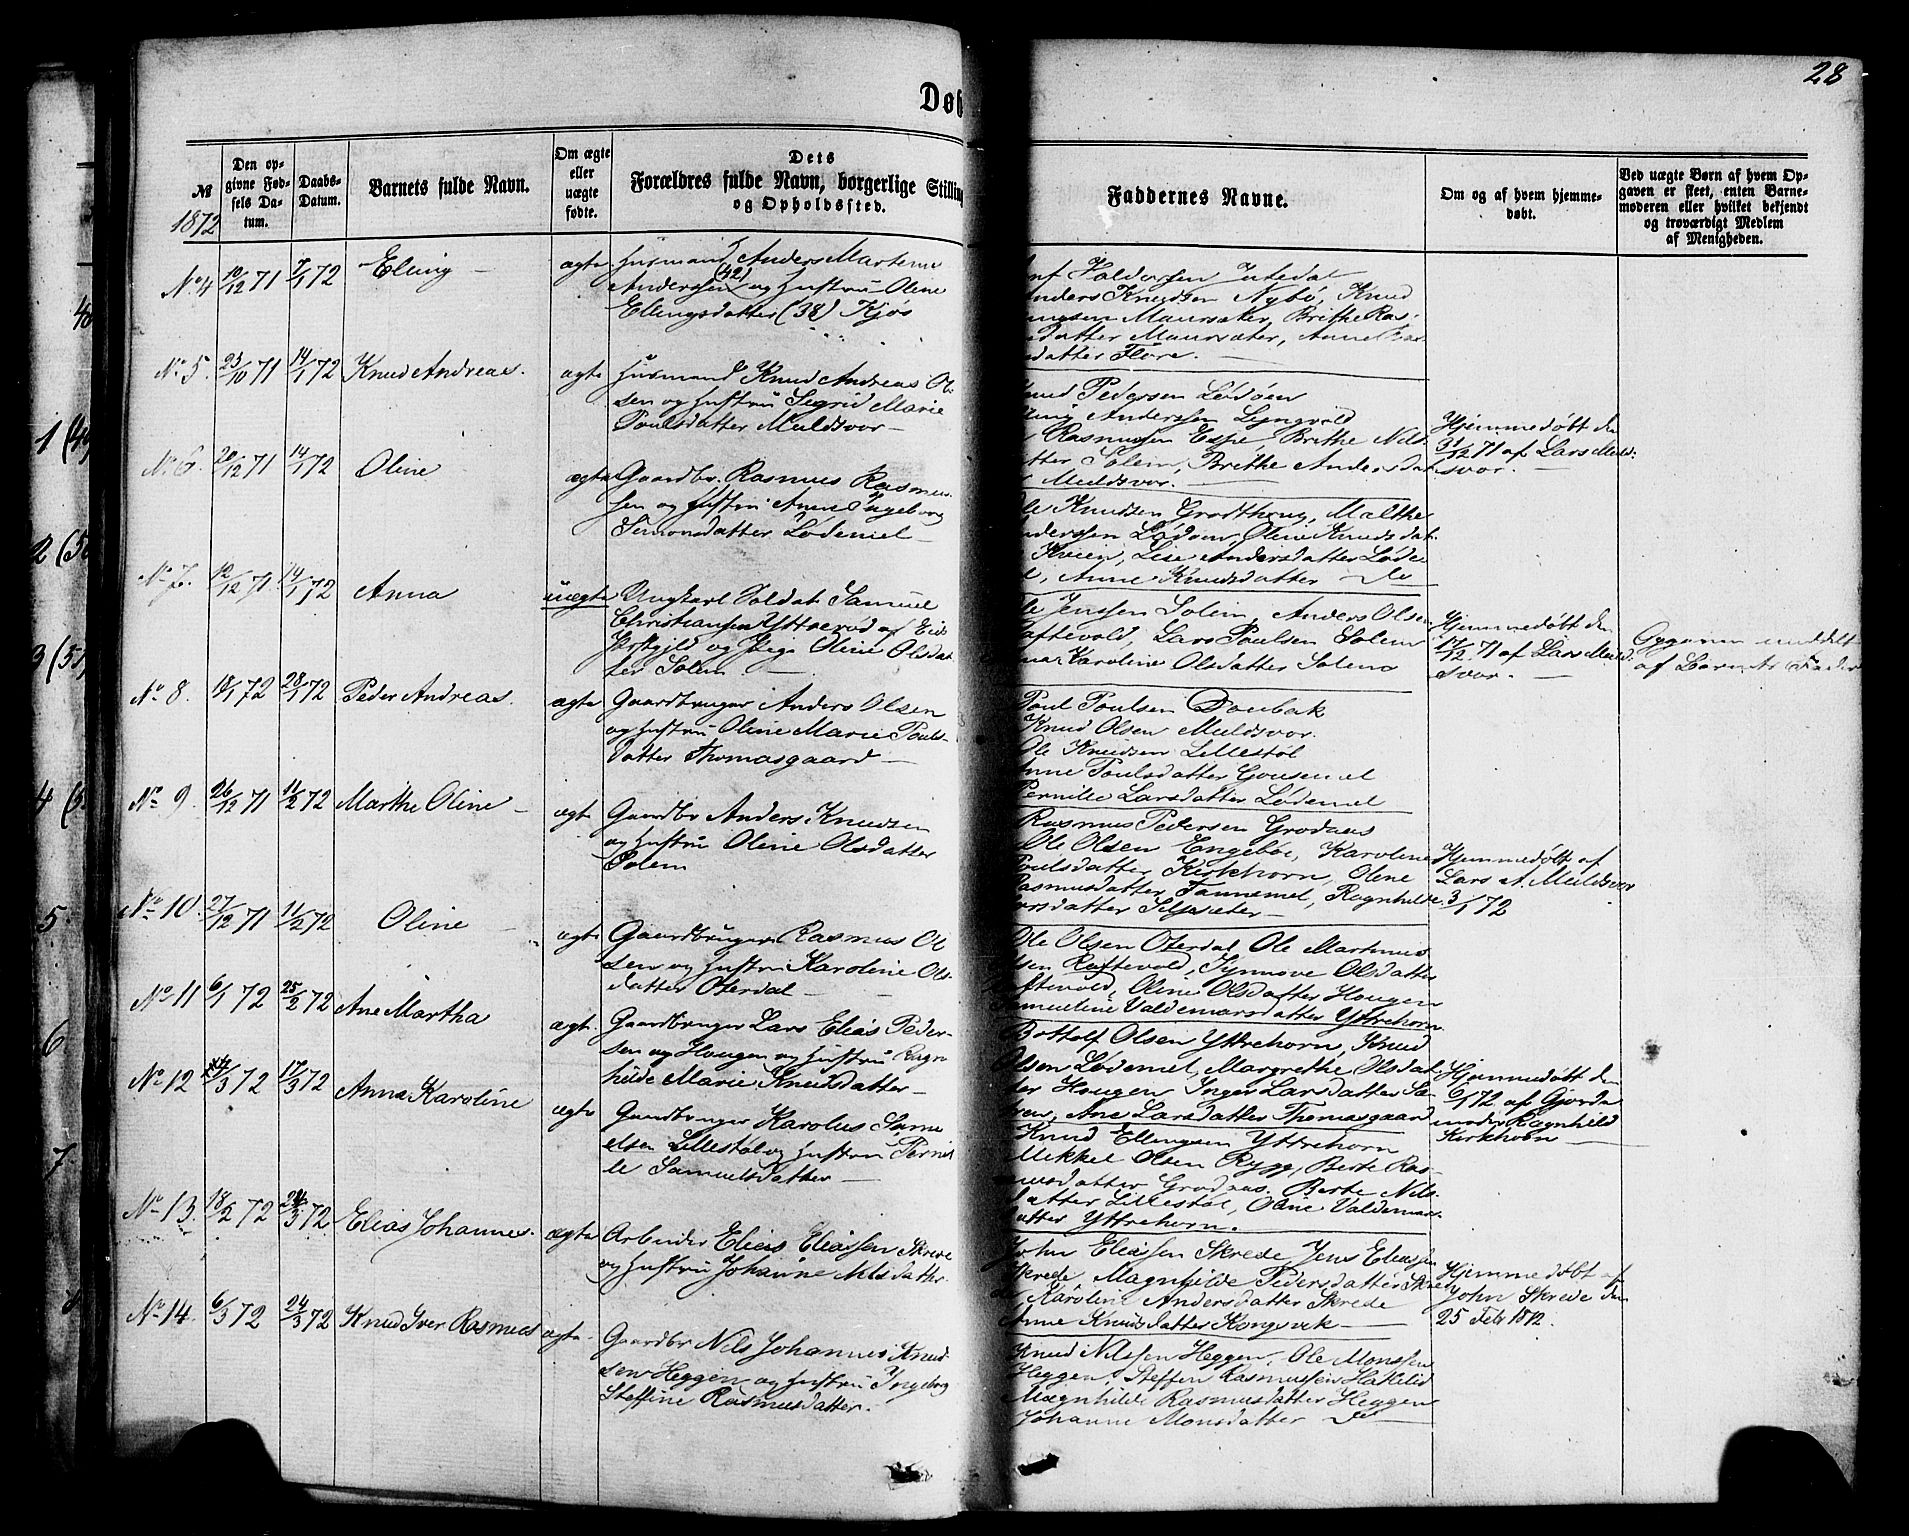 28
Døb
№
1872
Den op-
givne Fød-
sels Da-
tum.
Daabs-
Datum.
Barnets fulde Navn.
Om ægte
eller
uægte
fødte.
Dets
Forældres fulde Navn, borgerlige Stilling
og Opholdssted.
Faddernes Navne.
Om og af hvem hjemme-
døbt.
Ved uægte Børn af hvem Op-
gaven er skeet, enten Barne-
moderen eller hvilket bekjendt
og troværdigt Medlem
af Menigheden.
No 4 10/12 71 7/1 72 Elling - ægte Husmand Anders Martinu
Anderssen (42) og Hustru Oline
Ellingsdatter (38) Kjøs
Haldorsen
Anders Knudsen Nybø, Knud
Maursæter, Brithe Ras-
datter Maursæter, Anne
datter Flore. -
No 5. 23/10 71 14/1 72 Knud Andreas. ægte Husmand Knud Andreas Ol-
sen og Hustru Segrid Marie
Poulsdatter Muldsvor -
Knud Pedersen Lødøen
Anderssen Lyngvold
Rasmussen Espe, Brithe Nils-
atter Solem, Brithe Andersdat
Muldsvor. -
Hjemmedøbt den
31/12 71 af Lars Muld-
svor. -
No 6. 20/12 71 14/1 72 Oline ægte Gaardbr. Rasmus Rasmus-
sen og Hustru Anne Ingeborg
Simonsdatter Lødemel -
Ole Knudsen Grodthaug, Malthe
Anderssen Lødøen, Oline Knudsdat.
Kveien, Lise Andersdatter Løde-
l, Anne Knudsdatter do
No 7. 12/12 71. 14/1 72 Anna uægte Ungkarl Soldat Samuel
Christiansen Yttrerød af Eids
Præstgjeld og Pige Oline Olsdat-
ter Solem -
Ole Jenssen Solem, Anders Olsen
Raftevold, Lars Paulsen Solem
Karoline Olsdatter Solem
Hjemmedøbt den
17/12. 71 af Lars Muld-
svor. -
Opgaven meddelt
af Barnets Fader
No 8. 18/1 72 28/1 72 Peder Andreas. ægte Gaardbruger Anders Olsen
og Hustru Oline Marie Pouls-
datter Thomasgaard -
Poul Poulsen Doubak
Knud Olsen Muldsvor.
Ole Knudsen Lillestøl
Anne Poulsdatter Gousemel
Pernille Larsdatter Lødemel
No 9. 26/12 71 11/2 72 Marthe Oline - ægte Gaardbr Anders Knudsen
og Hustru Oline Olsdatter
Solem
Rasmus Pedersen Grodaas
Ole Olsen Engebøe, Karoline
Poulsdatter Kirkhorn, Oline
Rasmusdatter Tannemel, Ragnhilde
Larsdatter Seljesæter -
Hjemmedøbt af
Lars A. Muldsvor
3/1 72
No 10. 27/12 71 11/2 72 Oline - ægte Gaardbruger Rasmus Ol-
sen og Hustru Karoline Ols-
datter Oterdal -
Ole Olsen Oterdal, Ole Martinus
Olsen Raftevold, Synnøve Olsdatter
Raftevold, Oline Olsdatter Hougen
Samueline Valdemarsdatter Yttrehorn
No 11 6/1 72 25/2 72 Ane Martha ægte Gaardbruger Lars Elias Peder-
sen og Hougen og Hustru Ragn-
hilde Marie Knudsdatter -
Bottolf Olsen Yttrehorn, Knud
Olsen Lødemel, Margrethe Olsdat-
ter Hougen, Inger Larsdatter Sæ-
, Ane Larsdatter Thomasgaard
Hjemmedøbt den
6/1 72 af Gjorde-
moder Ragnhild
Kirkhorn -
No 12 4/3 72 17/3 72 Anna Karoline ægte Gaardbruger Karolus Samu-
elsen Lillestøl og Hustru Pernil-
le Samuelsdatter -
Knud Ellingsen Yttrehorn
Mikkel Olsen Rygg, Berte Ras-
musdatter Grodaas. Berte Nils-
datter Lillestøl, Oline Valdemars-
datter Yttrehorn.
No 13. 18/2 72 24/3 72 Elias Johannes. ægte Arbeider Elias Eliassen Skrede
og Hustru Johanne Nilsdatter
John Eliassen Skrede Jens Eliassen
Skrede Magnhilde Pedersdatter Skre-
de Karoline Andersdatter Skrede
Anne Knudsdatter Kongsvik -
Hjemmedøbt af
John Skrede den
25 Febr 1872.
No 14. 6/3 72 24/3 72 Knud Iver Rasmus ægte. Gaardbr Nils Johannes Knud-
sen Heggen og Hustru Ingeborg
Steffine Rasmusdatter.
Knud Nilssen Heggen, Ole Monssen
Heggen, Steffen Rasmussen Hakelid
Magnhilde Rasmusdatter Heggen
Johanne Monsdatter do
1
2
3
4
5.
6
7